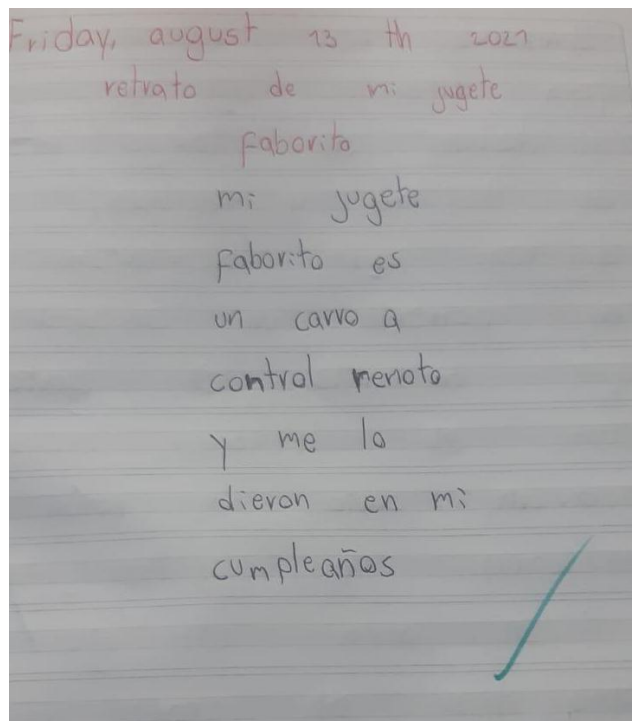 Friday, august 13 th 2021
retrato de mi jugete
faborito
mi jugete
faborito es
un carro a
control remoto
y me lo
dieron en mi
cumpleaños